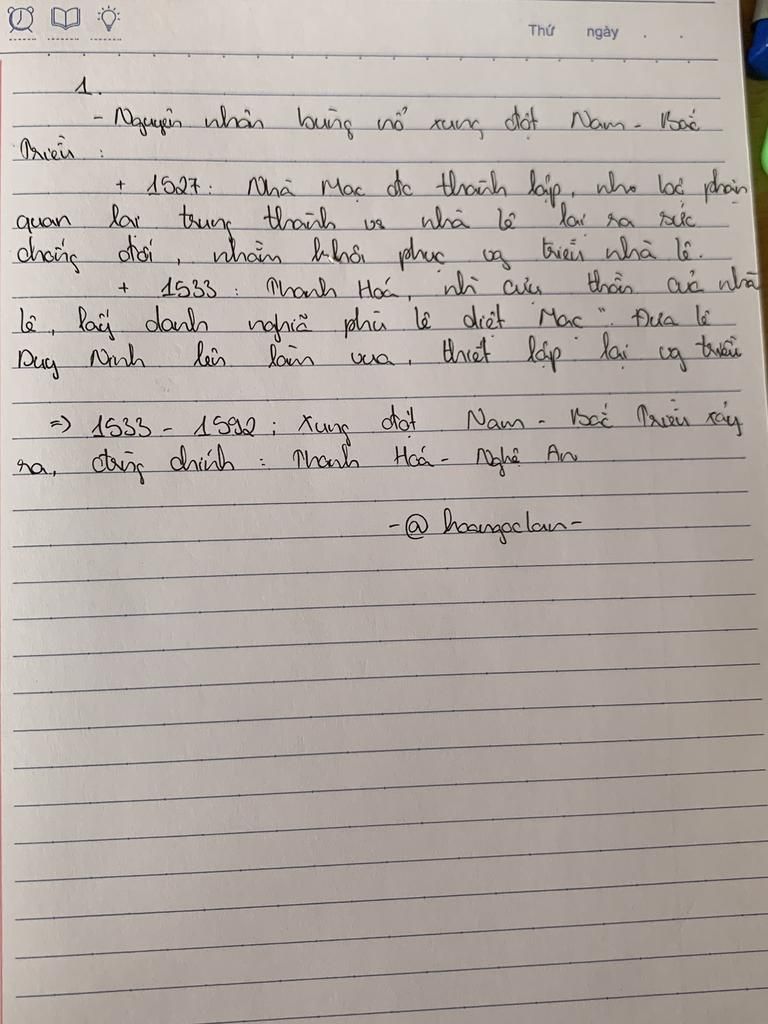 Thứ ngày . .
1.
- Nguyên nhân bùng nổ xung đột Nam - Bắc
Triều :
+ 1527 : Nhà Mạc đc thành lập, nho bộ phận
quan lại trung thành vs nhà Lê lại ra sức
chống đối, nhằm khôi phục vg triều nhà Lê.
+ 1533 : Thanh Hoá, cựu thần của nhà
Lê, lấy danh nghĩa phù Lê diệt Mạc". Đưa Lê
Duy Ninh lên làm vua, thiết lập lại vg triều
=> 1533 - 1592 : Xung đột Nam - Bắc Triều xảy
ra, chính : Thanh Hoá - Nghệ An
-@ hoangoclan-